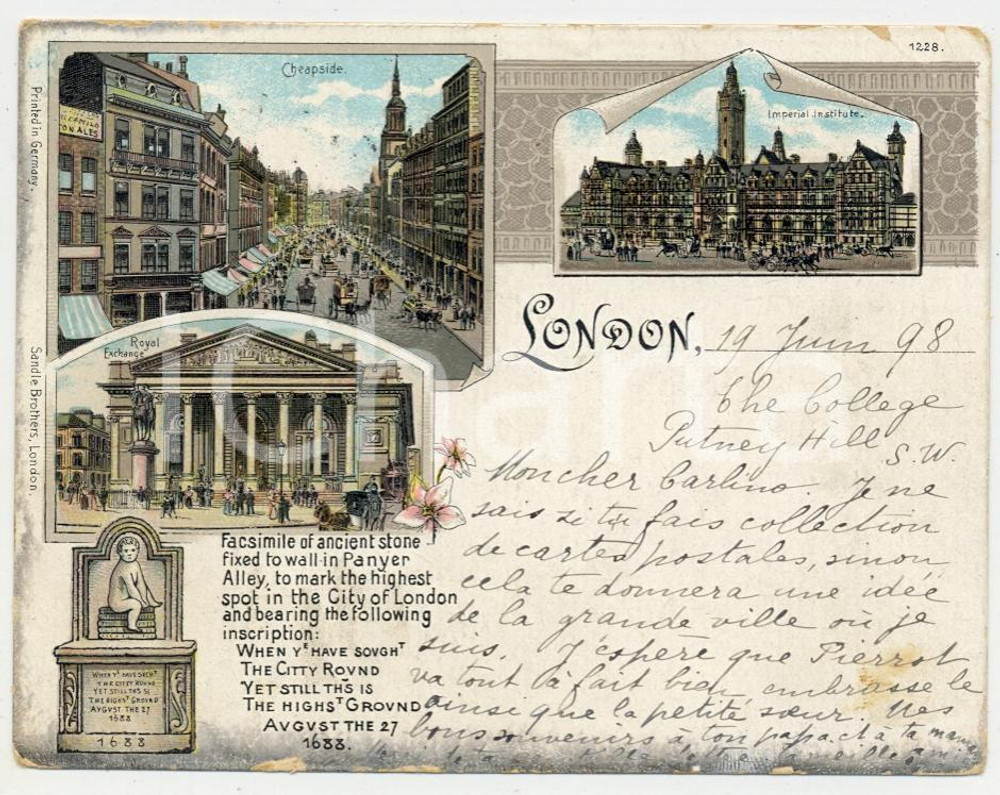 1228.
Cheapside.
Imperial Institute.
Printed in Germany.
TON ALES
Royal
Exchange
Sandle Brothers, London.
LONDON, 19 Juin 98
The College
Putney Hill
S.W.
Moncher Carlino. Je ne
sais si tu fais collection
de cartes postales, sinon
cela te donnera une idée
de la grande ville où je
suis. J'espère que Pierrot
va tout à fait bien embrasse le
ainsi que la petite sœur. Mes
bons souvenirs à ton papa et à ta maman
Facsimile of ancient stone
fixed to wall in Panyer
Alley, to mark the highest
spot in the City of London
and bearing the following
inscription:
WHEN Yᴱ HAVE SOVGHᵀ
THE CITTY ROVND
YET STILL THS IS
THE HIGHSᵀ GROVND
AVGVST THE 27
1688.
WHEN Yᵀ HAVE SOVGHᵀ
THE CITTY ROVND
YET STILL THS IS
THE HIGHSᵀ GROVND
AVGVST THE 27
1688
1688